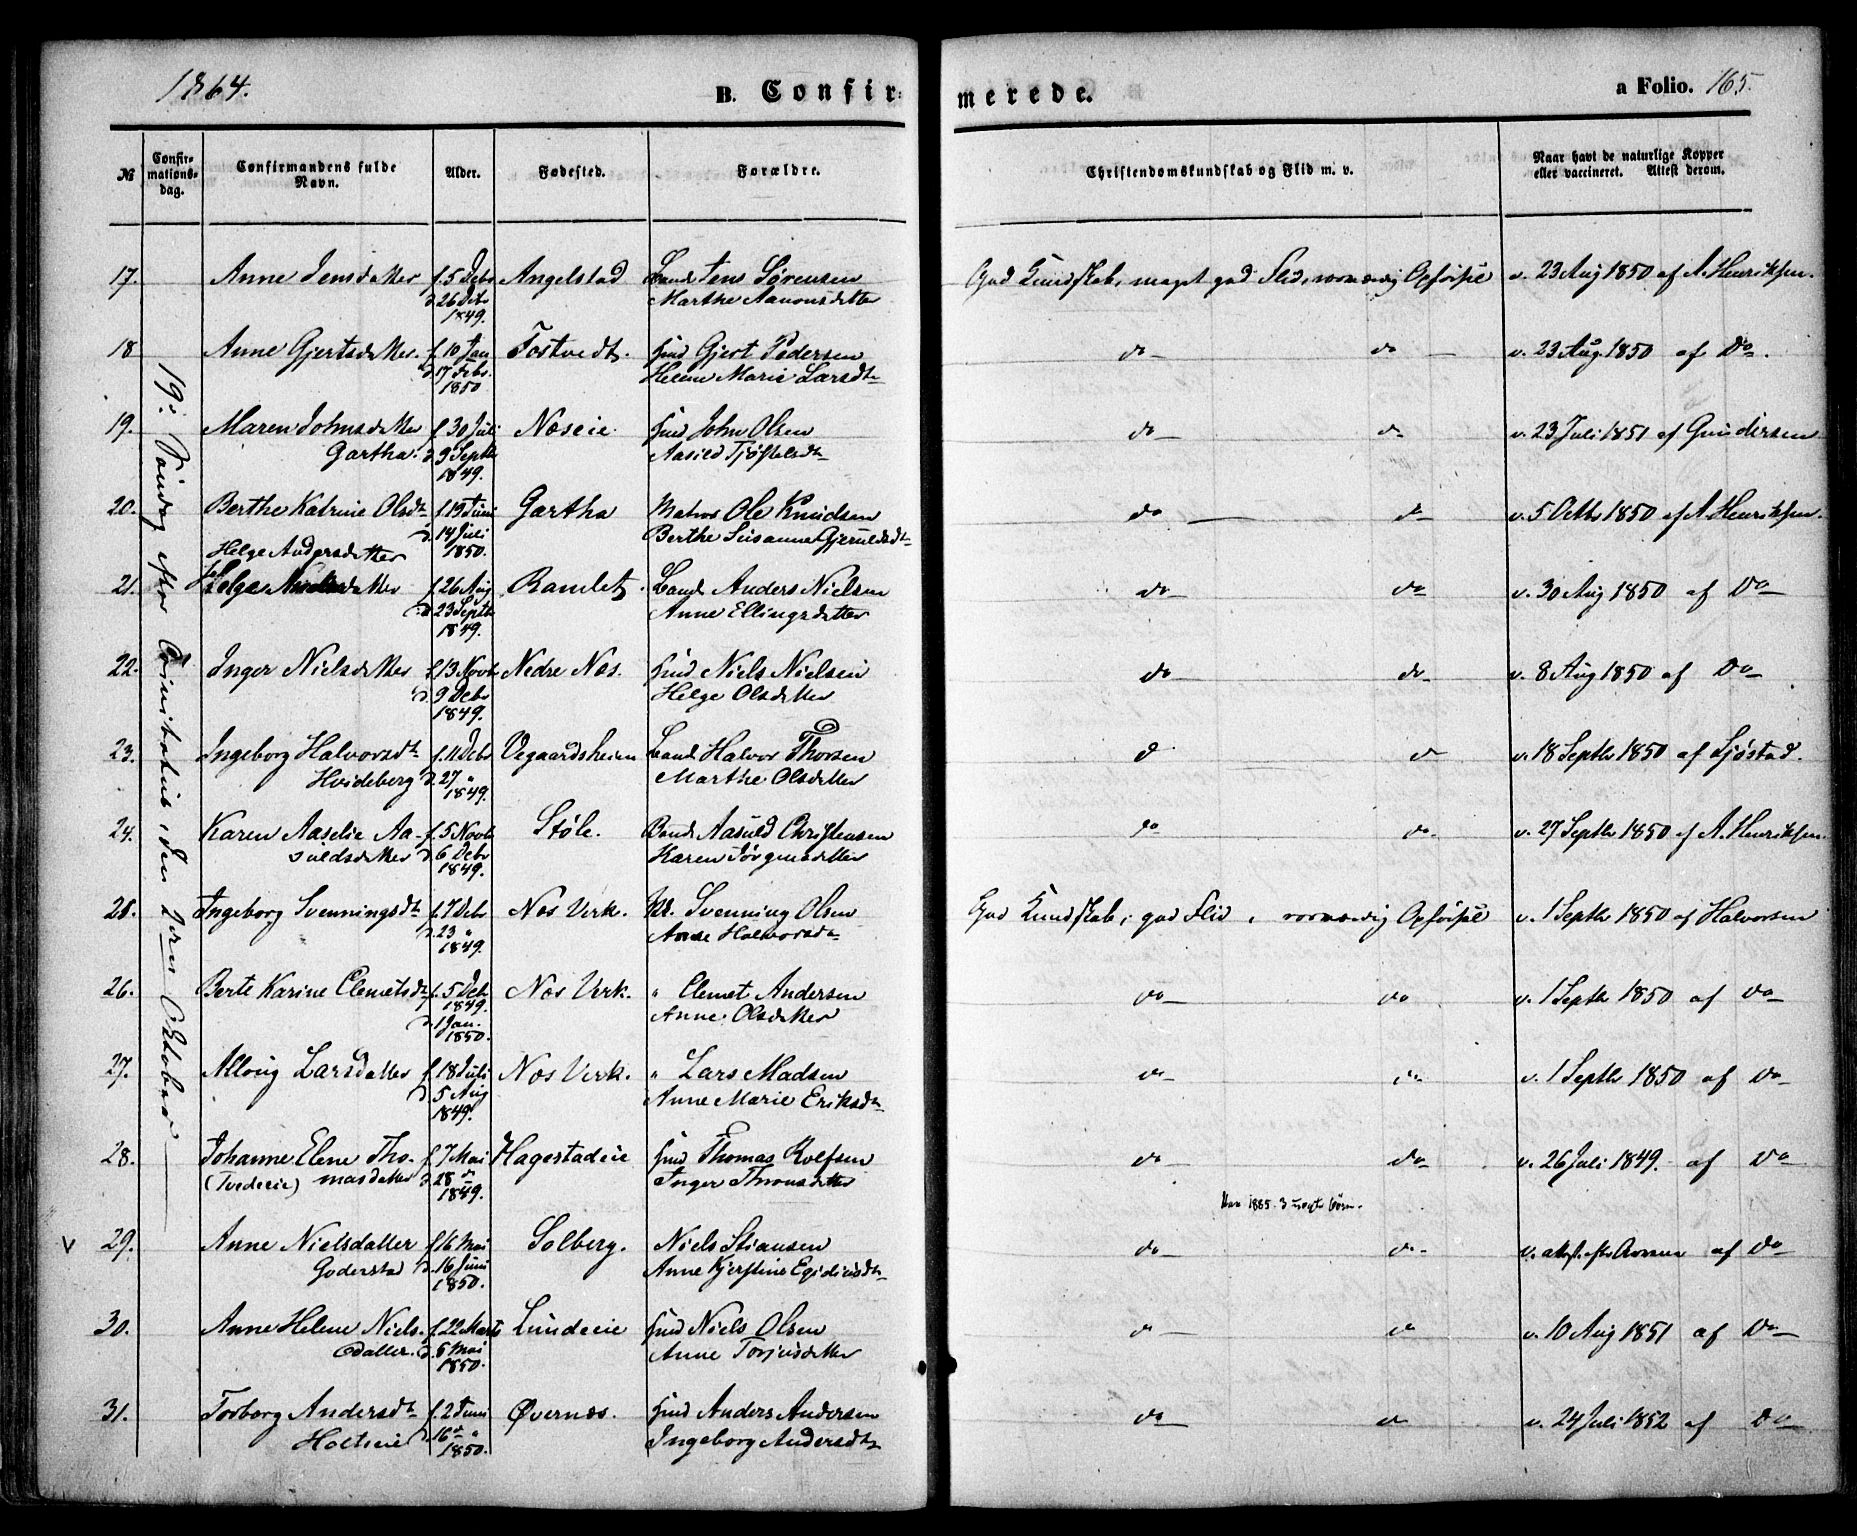 1864.
B. Confirmerede.
a Folio. 165.
№
Confirmationsdag.
Confirmandens fulde Navn.
Alder.
Fødested.
Forældre.
Christendomskundskab og Flid m. v.
Naar havt de naturlige Kopper eller vaccineret. Attest derom.
19: Søndag efter Trinitatis, den 2den October
17. Anne Jensdatter f. 5 Debr Angelstad Baand Jens Sørensen God Kundskab, meget god Flid, sømmelig Opførsel v. 23 Aug 1850 af A. Henriksen.
d. 26 Debr Marthe Aanonsdatter
1849.
18 Anne Gjertsdatter. f. 10 Jan Fostvedt. Hmd Gjert Pedersen do do v. 23 Aug. 1850 af Do.
d. 17 Febr. Helene Marie Larsdtr
1850
19. Maren Johnsdatter f. 30 Juli Næseie. Hmd John Olsen do do v. 23 Juli 1851 af Gundersen
Gartha. d. 9 Septbr Aasild Tjøstelsdtr
1849.
20. Berthe Katrine Olsdtr f. 19 Juni Gartha Matros Ole Knudsen do do v. 5 Octbr 1850 af A. Henriksen.
d. 14 Juli Berthe Susanne Gjeruldsdtr
1850.
Helge Andersdatter
21. Helga datter f. 26 Aug Ramlet. Baand Anders Nielsen do do v. 30 Aug 1850 af Do
d. 23 Septbr Anne Ellingsdatter
1849.
22. Inger Nielsdatter f. 13 Novbr Nedre Næs. Hmd Niels Nielsen do do v. 8 Aug 1850 af Do
d. 9 Debr Helge Olsdatter
1849.
23. Ingeborg Halvorsdtr f. 11 Debr Vegaardsheien Baand Halvor Thorsen d do v. 18 Septbr 1850 af Sjøstad.
Hvideberg d. 27 " Marthe Olsdatter
1849.
24. Karen Aaselie Aa- f. 5 Novbr Støle. Baand Aasuld Christensen do do v. 27 Septbr 1850 af A. Henriksen
suldsdatter d. 6 Debr Karen Jørgensdatter
1849.
25. Ingeborg Svenningsdtr f. 7 Debr Næs Verk. Svenning Olsen God Kundskab, god Flid, sømmelig Opførsel v. 1 Septbr 1850 af Halvorsen
d. 23 " Anne Halvorsdtr
1849.
26. Berte Karine Clemetsdtr f. 5 Debr Næs Verk. " Clemet Andersen do do v. 1 Septbr 1850 af Do
1849. Anne Olsdatter
d. 1 Jan.
1850.
27. Alloug Larsdatter f. 18 Juli Næs Verk. " Lars Madsen do do v. 1 Septbr 1850 af Do
d. 5 Aug Anne Marie Eriksdtr
1849.
28. Johanne Elene Tho- f. 7 Mai Hagestadeie Hmd Thomas Rolfsen do do v. 26 Juli 1849. af Do
(Tvedeeie) masdatter d. 28 d Inger Thronsdatter
1849.
1885. 3 uægte børn.
V 29. Anne Nielsdatter f. 16 Mai Solberg. Niels Stiansen do do v. af Do
Goderstad d. 16 Juni Anne Kjerstine Egidiusdtr
1850.
30. Anne Helene Niels- f. 22 Marts Lundeeie Hmd Niels Olsen do do v. 10 Aug 1851 af Do
datter. d. 5 Mai Anne Torjusdatter
1850.
31. Torborg Andersdtr f. 2 Juni Øvernæs. Hmd Anders Andersen do do v. 24 Juli 1852 af Do
Holtseie d. 16 " Ingeborg Andersdtr
1850.